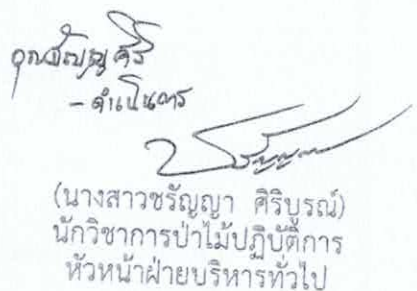 - ดำเนินการ
(นางสาวชรัญญา ศิริบูรณ์)
นักวิชาการป่าไม้ปฏิบัติการ
หัวหน้าฝ่ายบริหารทั่วไป